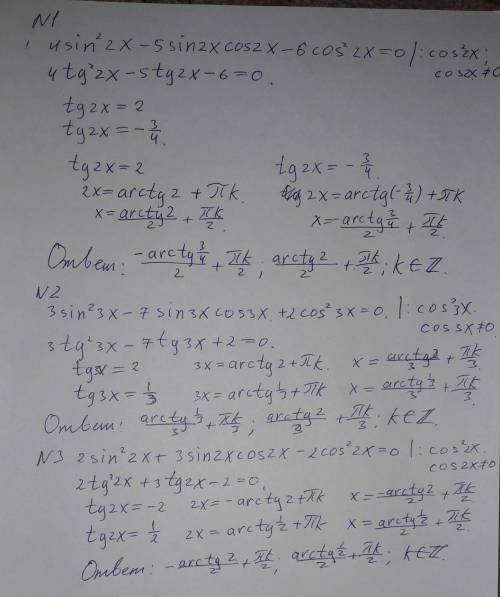 N1
4sin²2x - 5sin2xcos2x - 6cos²2x = 0 |: cos²2x;
cos2x≠0
4tg²2x - 5tg2x - 6 = 0.
tg2x = 2
tg2x = -3/4.
tg2x = 2
2x = arctg2 + πk
x = arctg2/2 + πk/2.
tg2x = -3/4.
2x = arctg(-3/4) + πk
x = -arctg3/4/2 + πk/2.
Ответ: -arctg3/4/2 + πk/2; arctg2/2 + πk/2; k∈ℤ.
N2
3sin²3x - 7sin3xcos3x + 2cos²3x = 0. |: cos²3x.
cos3x≠0.
3tg²3x - 7tg3x + 2 = 0.
tg3x = 2 3x = arctg2 + πk. x = arctg2/3 + πk/3.
tg3x = 1/3 3x = arctg1/3 + πk x = arctg1/3/3 + πk/3.
Ответ: arctg1/3/3 + πk/3; arctg2/3 + πk/3; k∈ℤ.
N3 2sin²2x + 3sin2xcos2x - 2cos²2x = 0 |: cos²2x.
cos2x≠0
2tg²2x + 3tg2x - 2 = 0.
tg2x = -2 2x = -arctg2 + πk x = -arctg2/2 + πk/2
tg2x = 1/2 2x = arctg1/2 + πk x = arctg1/2/2 + πk/2.
Ответ: -arctg2/2 + πk/2; arctg1/2/2 + πk/2; k∈ℤ.